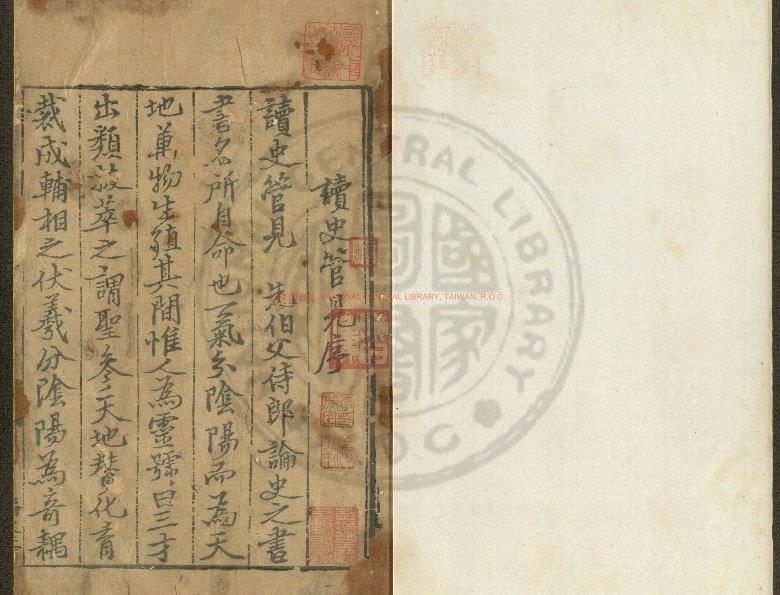 讀史管見序
讀史管見 先伯父侍郎論史之書
書名所自命也一氣分陰陽而為天
地萬物生殖其間惟人為靈號曰三才
出類拔萃之謂聖參天地贊化育
裁成輔相之伏羲分陰陽為奇耦
NATIONAL CENTRAL LIBRARY, TAIWAN, R.O.C.
CENTRAL LIBRARY
國家圖書館